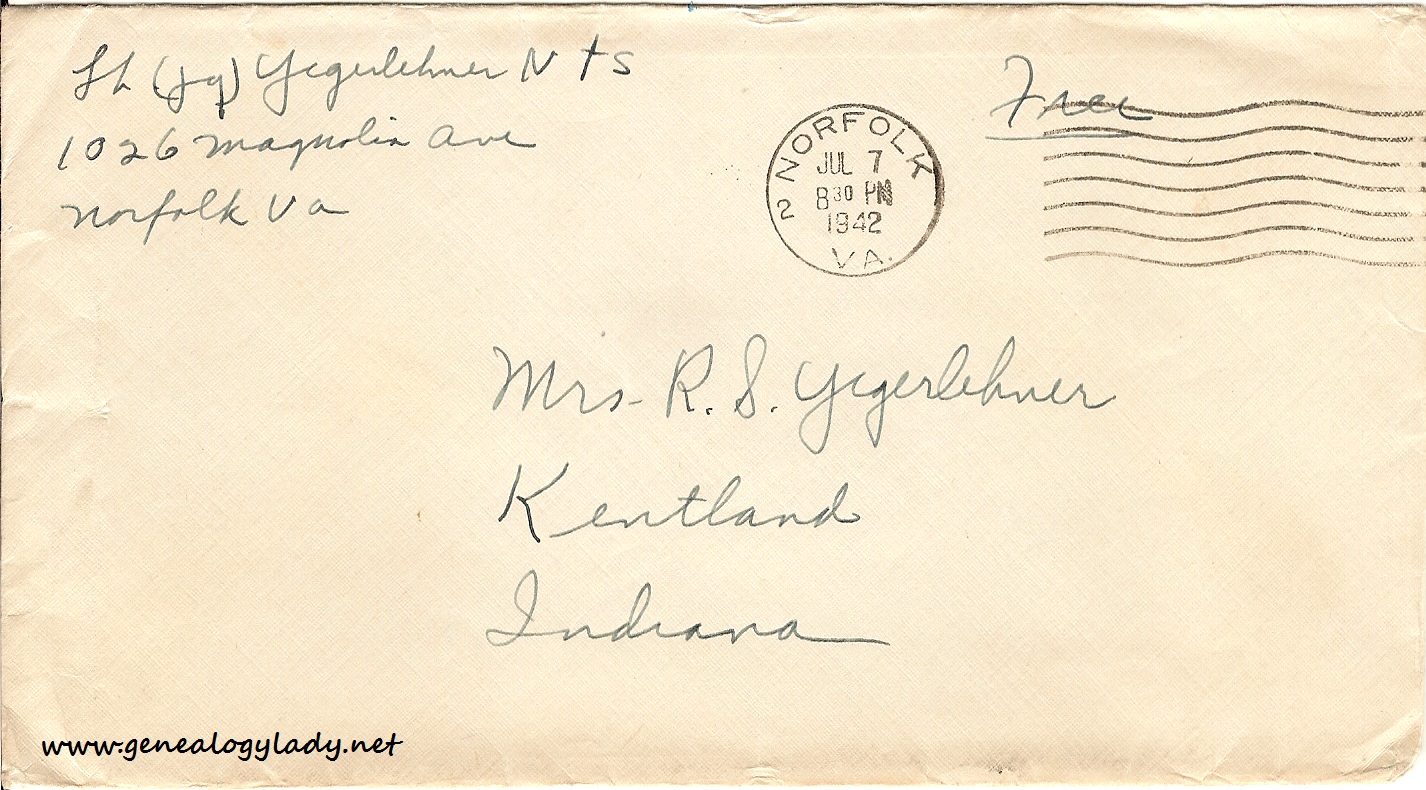 Lt (jg) Yegerlehner N t S
1026 Magnolia Ave
Norfolk Va
Free
NORFOLK
2
JUL 7
8 30 PM
1942
VA.
Mrs. R. S. Yegerlehner
Kentland
Indiana
www.genealogylady.net